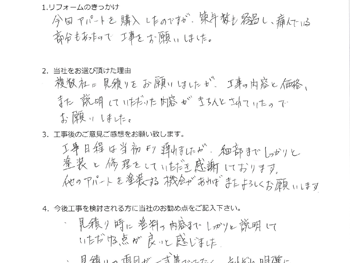 1.リフォームのきっかけ
今回アパートを購入したのですが、築年数も経過し、痛んでいる
部分もあったので工事をお願いしました。
2、当社をお選び頂けた理由
複数社に見積りをお願いしましたが、工事の内容と価格、
また説明していただいた内容がきちんとされていたので
お願いしました。
3、工事後のご意見ご感想をお願い致します。
工事日程は当初より遅れましたが、細部までしっかりと
塗装と修理をしていただき感謝しております。
他のアパートを塗装する機会があればまたよろしくお願いします
4、今後工事を検討される方に当社のお勧め点をご記入下さい。
・見積り時に塗料の内容までしっかりと説明して
いただける点が良いと感じました
・見積りの項目が一式